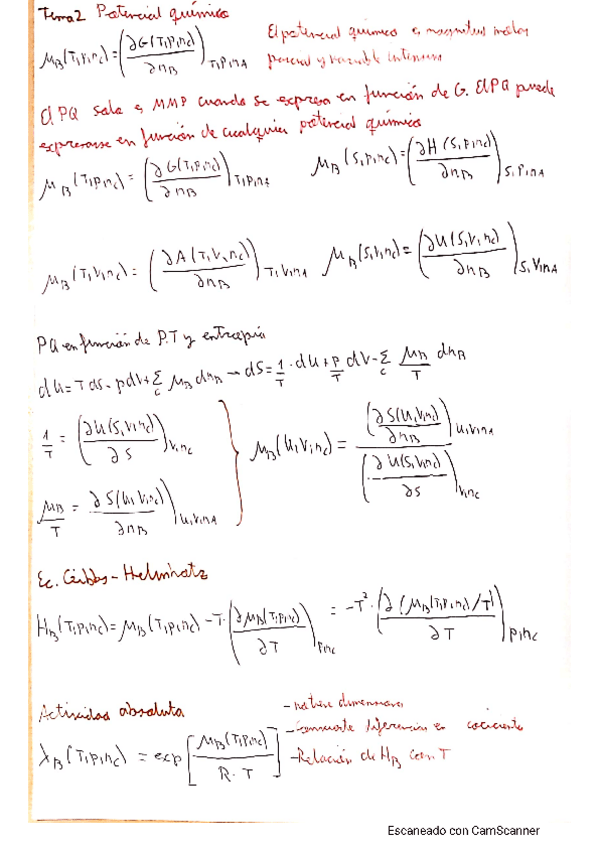 Tema 2 Potencial químico
μB(T,p,nC) = (∂G(T,p,nC)/∂nB)T,p,nA
El potencial químico es magnitud molar
parcial y variable intensiva
El PQ solo es MMP cuando se expresa en función de G. El PQ puede
expresarse en función de cualquier potencial químico
μB(T,p,nC) = (∂G(T,p,nC)/∂nB)T,p,nA    μB(S,p,nC) = (∂H(S,p,nC)/∂nB)S,p,nA
μB(T,V,nC) = (∂A(T,V,nC)/∂nB)T,V,nA    μB(S,V,nC) = (∂U(S,V,nC)/∂nB)S,V,nA
PQ en función de P.T y entropía
dU = T dS - pdV + ΣC μB dnB → dS = 1/T · dU + p/T dV - ΣC μB/T dnB
1/T = (∂U(S,V,nC)/∂S)V,nC
μB/T = ∂S(U,V,nC)/∂nB)U,V,nA
μB(U,V,nC) = (∂S(U,V,nC)/∂nB)U,V,nA / (∂U(S,V,nC)/∂S)V,nC
Ec. Gibbs-Helmholtz
HB(T,p,nC) = μB(T,p,nC) - T·(∂μB(T,p,nC)/∂T)p,nC = -T²·(∂(μB(T,p,nC)/T)/∂T)p,nC
Actividad absoluta
λB(T,p,nC) = exp[μB(T,p,nC)/R·T]
- no tiene dimensiones
- Convierte diferencias en cociente
- Relación de HB con T
Escaneado con CamScanner